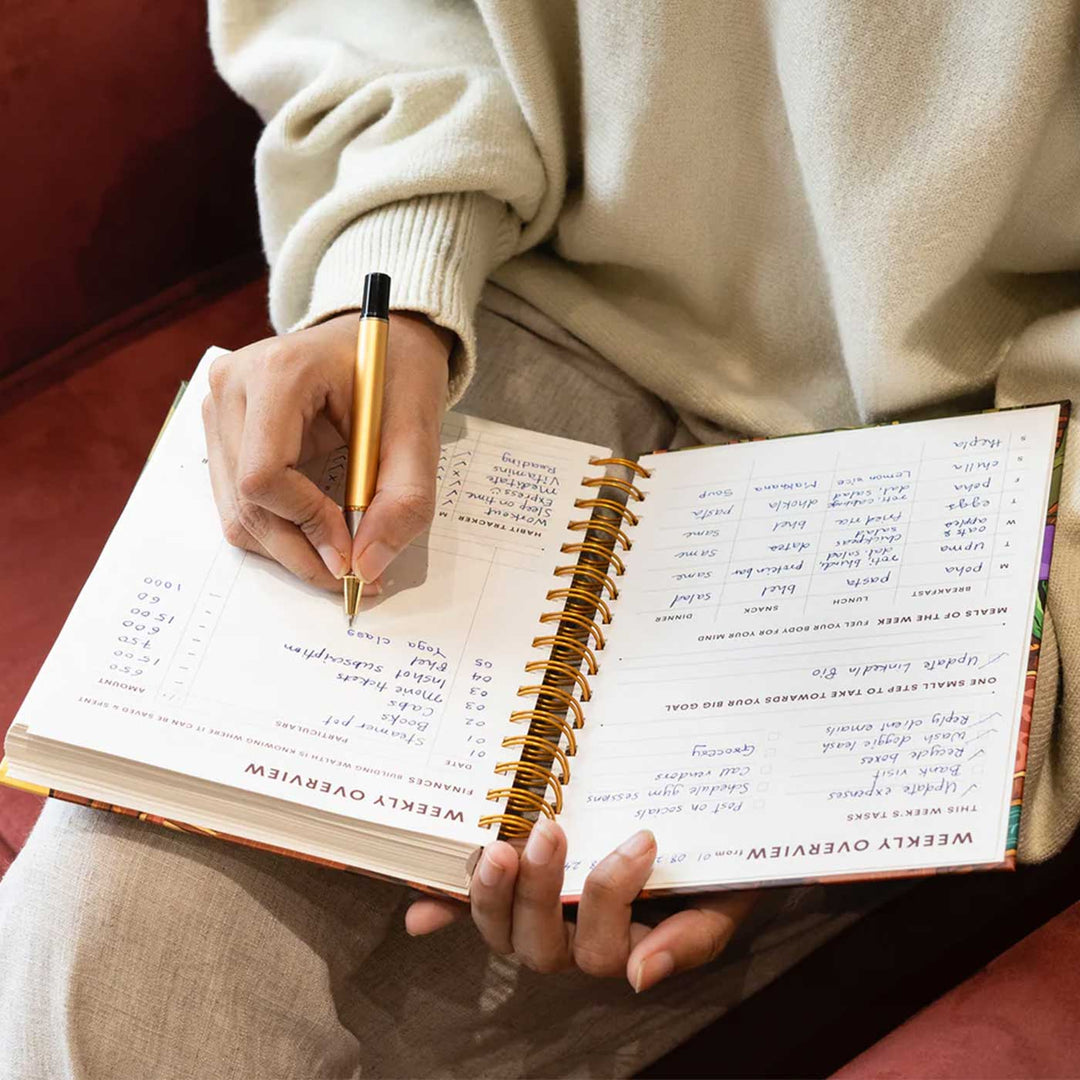 WEEKLY OVERVIEW from 01 08
THIS WEEK'S TASKS
✓ Update expenses Post on socials
Bank visit Schedule gym sessions
✓ Recycle boxes Call vendors
Wash doggie leash Groccery
✓ Reply client emails
ONE SMALL STEP TO TAKE TOWARDS YOUR BIG GOAL
✓ Update LinkedIn Bio
MEALS OF THE WEEK FUEL YOUR BODY FOR YOUR MIND
BREAKFAST LUNCH SNACK DINNER
M poha pasta bhel salad
T upma roti, bhindi, dal, salad protein bar same
W oats & apples chickpeas salad dates same
T eggs fried rice bhel same
F poha roti, cabbage dal, salad dhokla pasta
S chilla Lemon rice Makhana Soup
S thepla
WEEKLY OVERVIEW
FINANCES BUILDING WEALTH IS KNOWING WHERE IT CAN BE SAVED & SPENT
DATE PARTICULARS AMOUNT
01 Steamer pot 650
01 Books 1500
02 Cabs 750
03 Movie tickets 600
03 Inshot subscription 1500
04 Bhel 60
05 Yoga class 1000
HABIT TRACKER M
Workout
Sleep on time
Express
Meditate
Vitamins
Reading